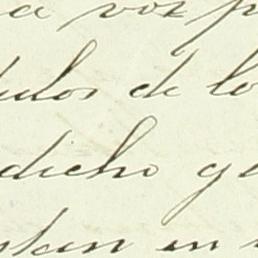 a voz p
dulos de lo
dicho ge
stan en